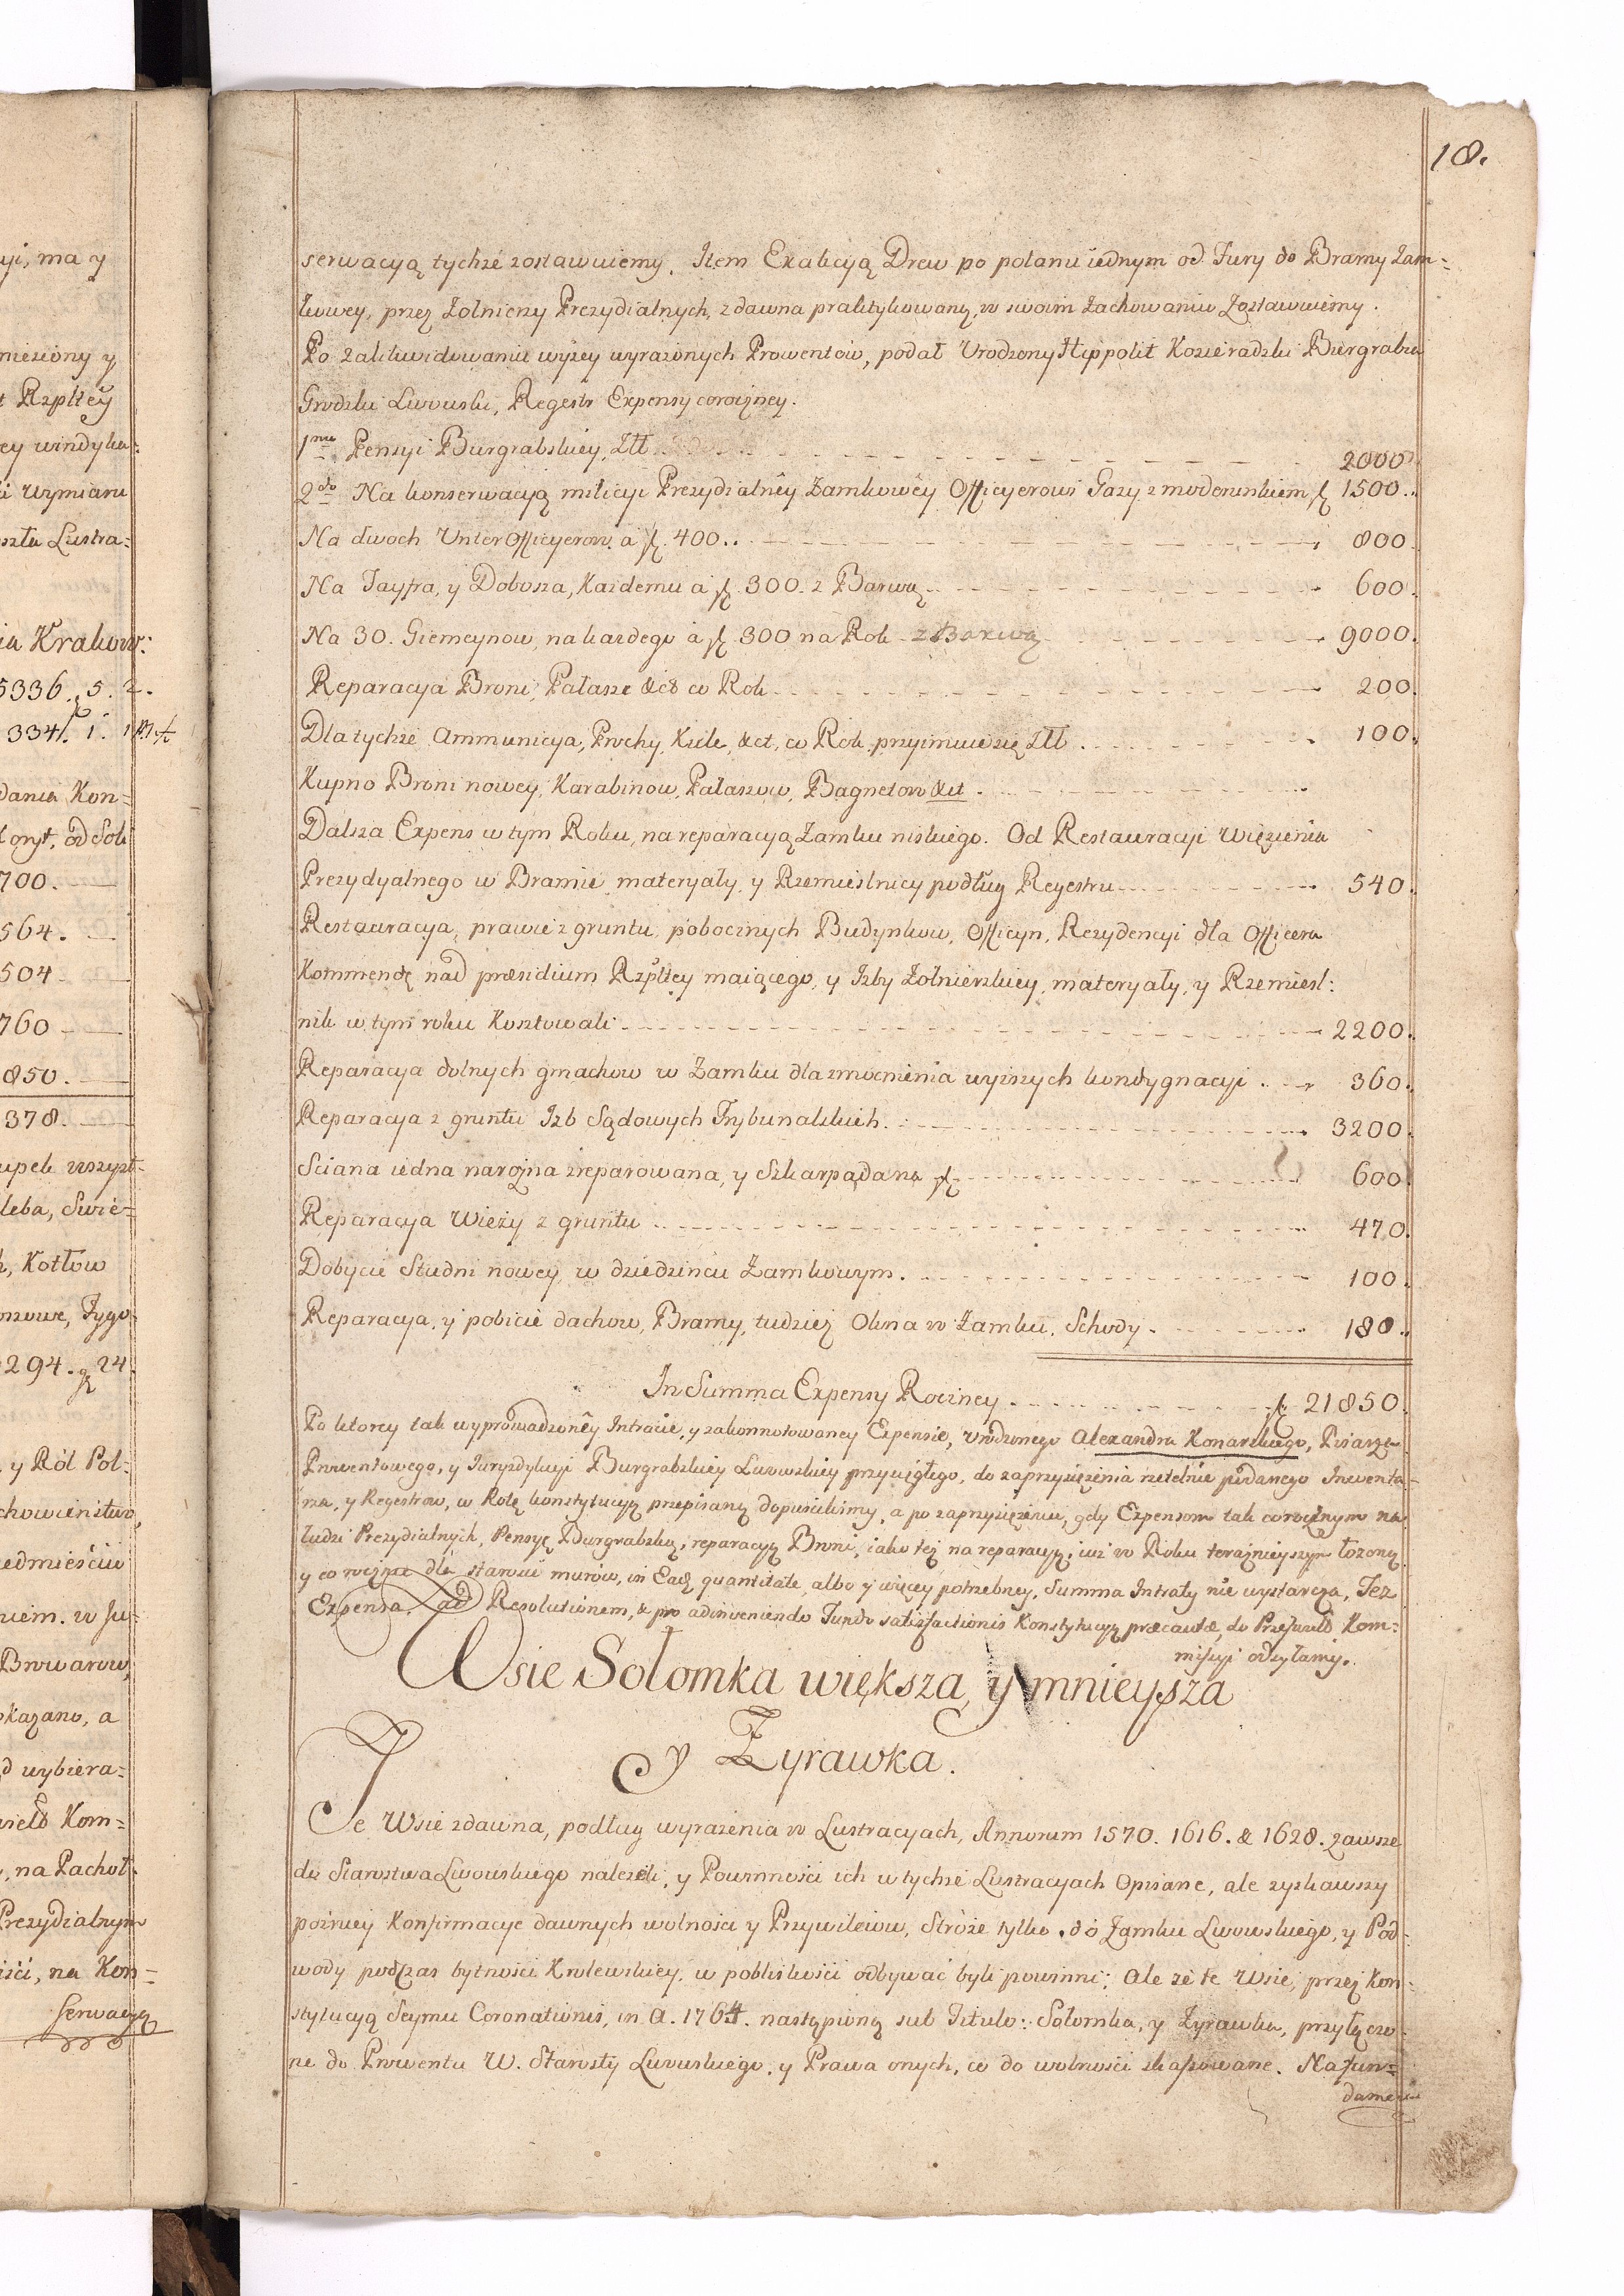 18.
serwacyą tychże zostawuiemy. Item Exakcyą Drew po polanu iednym od Fury do Bramy Zam=
kowey, przez Zolnierzy Prezydialnych, zdawna praktykowaną, w swoim Zachowaniu Zostawuiemy.
Po zalikwidowaniu wyżey wyrażonych Prowentow, podał Urodzony Hippolit Kosieradzki Burgrabia
Grodzki Lwowski, Regestr Expensy coroczney.
1mo Pensyi Burgrabskiey, Złł 2000
2do Na konserwacyą milicyi Prezydialnêy Zamkowêy Officyerowi Gaży z moderunkiem fl 1500.
Na dwoch UnterOfficyerow a fl. 400.. 800.
Na Fayfra, y Dobosza, Każdemu a fl. 300. z Barwą 600.
Na 30. Giemeynow, na każdego a fl 300 na Rok z Barwą 9000.
Reparacya Broni, Pałasze &ct co Rok 200.
Dla tychże Ammunicya, Prochy, Kule, &ct, co Rok przyimuie się Złł 100.
Kupno Broni nowey, Karabinow, Pałaszow, Bagnetow &ct
Dalsza Expens w tym Roku, na reparacyą Zamku niskiego. Od Restauracyi Więzienia
Prezydyalnego w Bramie materyały, y Rzemieslnicy podług Regestru 540.
Restauracya, prawie z gruntu, pobocznych Budynkow, Officyn, Rezydencyi dla Officera
Kommendę nad præsidium Rzpltey maiącego, y Izby Zolnierskiey, materyały, y Rzemiesl:
nik w tym roku Kosztowali 2200.
Reparacya dolnych gmachow w Zamku dla zmocnienia wyższych kondygnacyi 360.
Reparacya z gruntu Izb Sądowych Trybunalskich 3200.
Sciana iedna narożna zreparowana, y Szkarpą dana fl 600
Reparacya Wieży z gruntu 470.
Dobycie Studni nowey w dziedzińcu Zamkowym 100.
Reparacya, y pobicie dachow, Bramy, tudzież Okna w Zamku, Schody 180.
In Summa Expensy Roczney fl. 21850.
Po ktorey tak wyprowadzonêy Intracie, y zakonnotowaney Expensie, Urodzonego Alexandra Konarskiego, Pisarza
Prowentowego, y Juryzdykcyi Burgrabskiey Lwowskiey przysięgłego, do zaprzysiężenia rzetelnie podanego Inwenta=
rza, y Regestrow, w Rotę konstytucyą przepisaną dopuściliśmy, a po zaprzysiężeniu, gdy Expensom tak corocznym na
ludzi Prezydialnych, Pensyę Burgrabską, reparacyą Broni, iako też na reparacyą, iuż w Roku teraźnieyszym łożoną
y co roczną dla starości murów, in Eadem quantitate, albo y więcey potrzebney, Summa Intraty nie wystarcza, Też
Expensa, ad Resolutionem, & pro adinveniendo Fundo satisfactionis Konstytucyą præcautæ, do Prześwieto Kom:
missyi odsyłamy.
Wsie Sołomka większa, y mnieysza
y Zyrawka.
Te Wsie zdawna, podług wyrażenia w Lustracyach, Annorum 1570. 1616. & 1628. zawsze
do Starostwa Lwowskiego należeli, y Powinności ich w tychże Lustracyach Opisane, ale zyskawszy
poźniey Konfirmacye dawnych wolności y Przywileiow, Stróże tylko do Zamku Lwowskiego, y Pod=
wody podczas bytności Krolewskiey, w pobliskości odbywać byli powinni; Ale że te Wsie, przez Kon=
stytucyą Seymu Coronationis, in A. 1764. nastąpioną sub Titulo: Sołomka, y Zyrawka, przyłączo=
ne do Prowentu W. Starosty Lwowskiego, y Prawa onych, co do wolności skassowane. Na fun=
damen